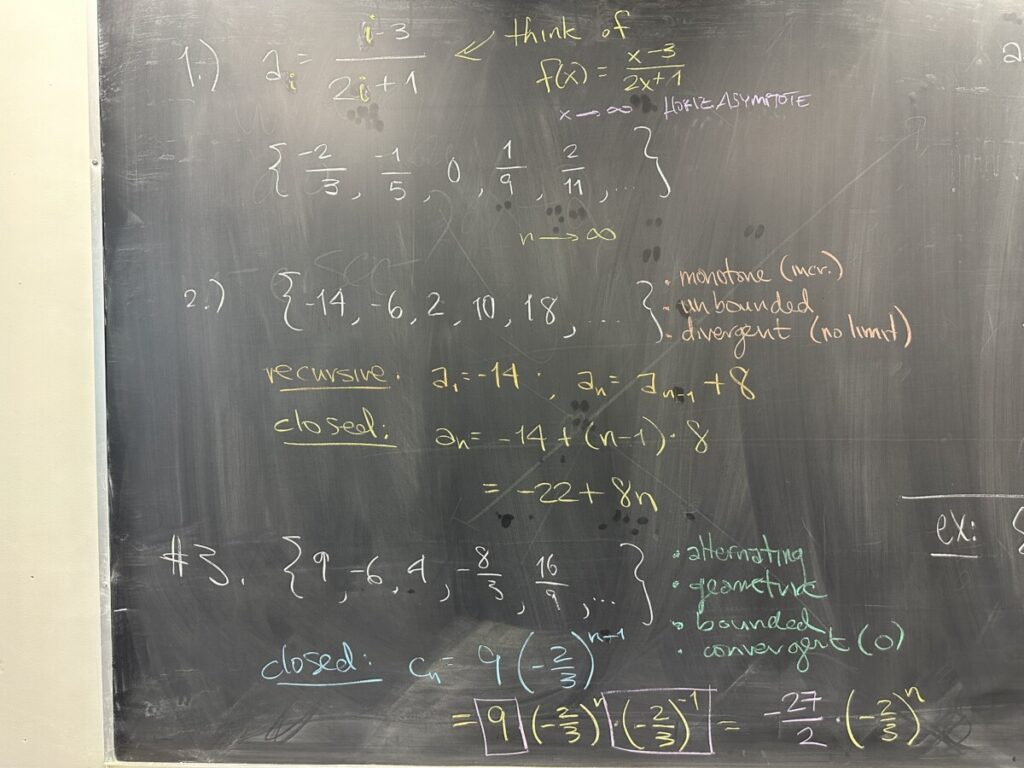 1.) a_i = (i-3)/(2i+1) ← think of f(x) = (x-3)/(2x+1)
x → ∞ HORIZ ASYMPTOTE
{ -2/3, -1/5, 0, 1/9, 2/11, ... }
n → ∞
2.) { -14, -6, 2, 10, 18, ... }
• monotone (incr.)
• unbounded
• divergent (no limit)
recursive: a_1 = -14, a_n = a_{n-1} + 8
closed: a_n = -14 + (n-1) · 8
= -22 + 8n
#3. { 9, -6, 4, -8/3, 16/9, ... }
• alternating
• geometric
• bounded
• convergent (0)
closed: c_n = 9 (-2/3)^{n-1}
= 9 (-2/3)^n · (-2/3)^{-1} = -27/2 · (-2/3)^n
ex: